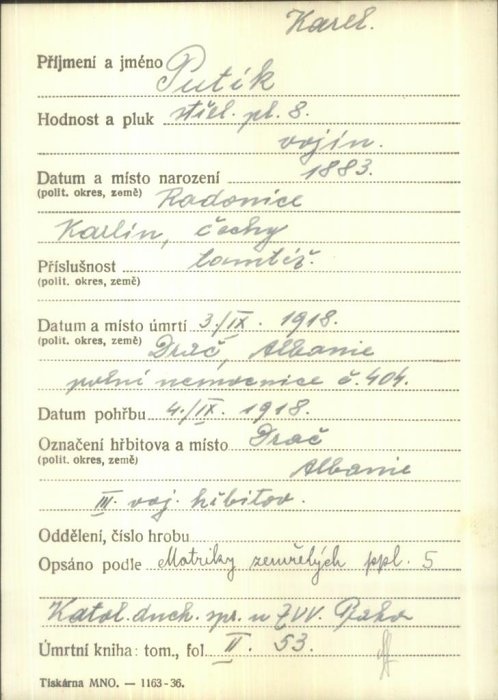 Karel.
Příjmení a jméno Putík
Hodnost a pluk střel. pl. 8.
vojín.
Datum a místo narození 1883.
(polit. okres, země) Radonice
Karlín, čechy
Příslušnost tamtéž.
(polit. okres, země)
Datum a místo úmrtí 3./IX. 1918.
(polit. okres, země) Drač, Albanie
polní nemocnice č. 404.
Datum pohřbu 4./IX. 1918.
Označení hřbitova a místo Drač
(polit. okres, země)
Albanie
III. voj. hřbitov.
Oddělení, číslo hrobu
Opsáno podle Matriky zemřelých ppl. 5
Katol. duch. spr. u ZVV. Praha
Úmrtní kniha: tom., fol. II. 53.
Tiskárna MNO. — 1163-36.